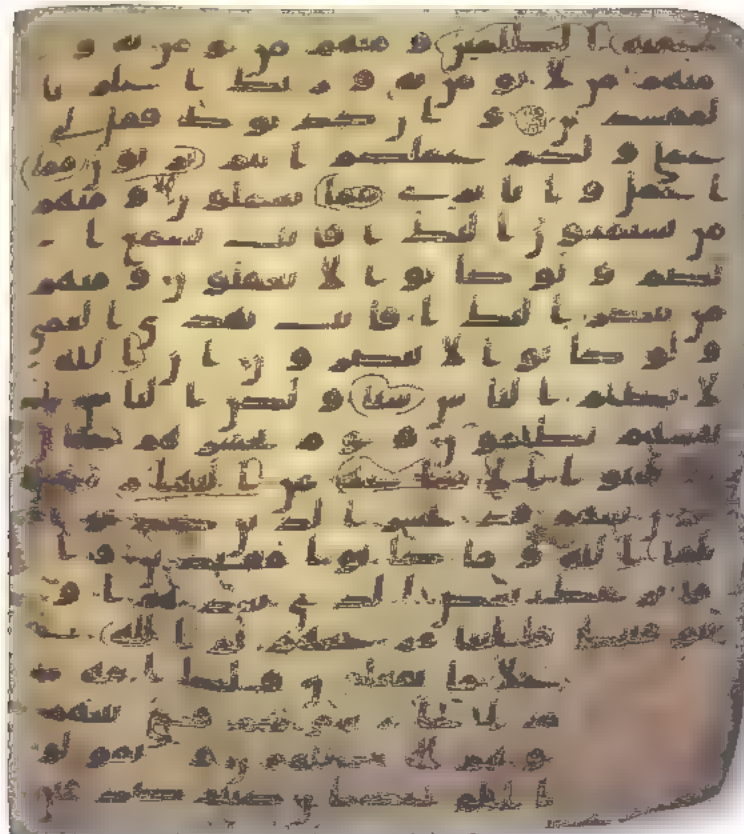 عقبه الظلمين و منهم من يومن به و
منهم من لا يومن به و ربك اعلم با
لمفسدين و ان كذبوك فقل لي
عملي و لكم عملكم انتم بريون مما
اعمل و انا بري مما تعملون و منهم
من يستمعون اليك افانت تسمع ا
لصم و لو كانوا لا يعقلون و منهم
من ينظر اليك افانت تهدي العمي
و لو كانوا لا يبصرون ان الله
لا يظلم الناس شيا و لكن الناس ا
نفسهم يظلمون و يوم يحشرهم كا
يلبثوا الا ساعه من النهار
بينهم قد خسر الذين كذبوا
بلقا الله و ما كانوا مهتدين و ا
ما نرينك بعض الذي نعدهم او
نتوفينك فالينا مرجعهم ثم الله
على ما يفعلون و لكل امه ر
قضي بينهم
و هم لا يظلمون و يقولو
ان كنتم